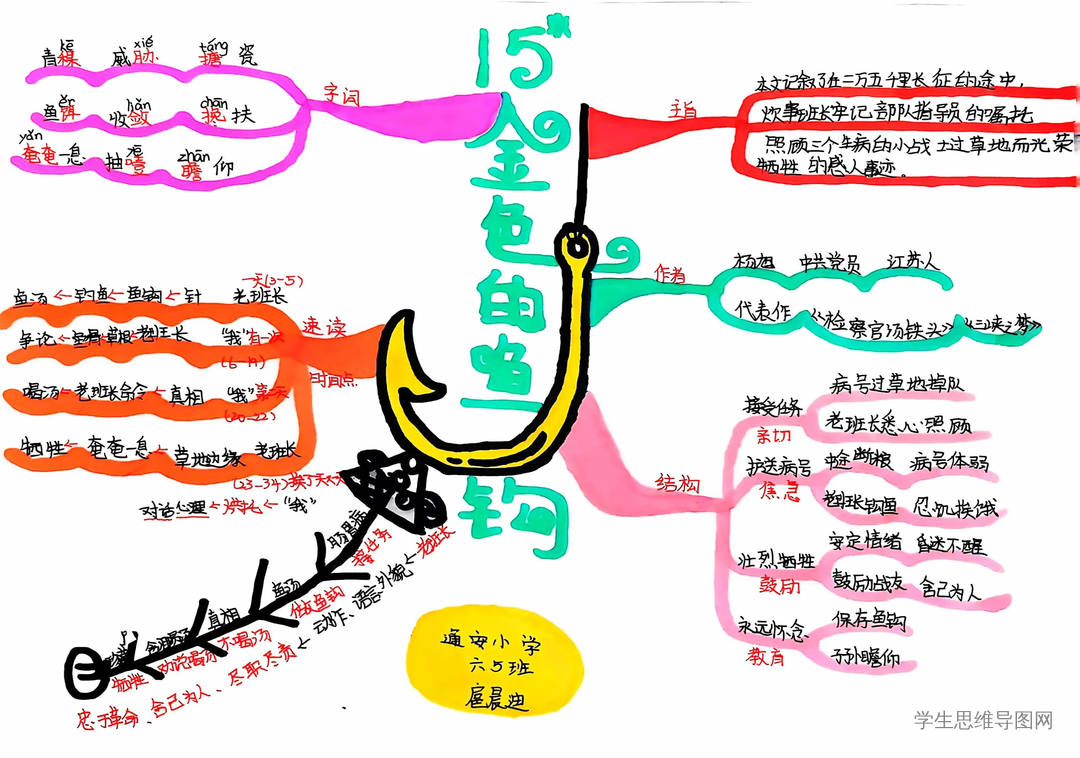 15*
金色的鱼钩
字词
kē xié táng
青稞 威胁 搪瓷
ěr liǎn chān
鱼饵 收敛 搀扶
yǎn yē zhān
奄奄一息 抽噎 瞻仰
主旨
本文记叙了在二万五千里长征的途中,
炊事班长牢记部队指导员的嘱托
照顾三个生病的小战士过草地而光荣
牺牲的感人事迹。
作者
杨旭 中共党员 江苏人
代表作 《检察官汤铁头》《三峡之梦》
速读
时间点
一天(3-5)
鱼汤←钓鱼←鱼钩←针 老班长
争论←鱼骨草根←老班长 “我”有一次
(6-19)
喝汤←老班长命令←真相 “我”第一天
(20-22)
牺牲←奄奄一息←草地边缘 老班长
(23-34)
对话心理← ←“我”
结构
接受任务
亲切
病号过草地掉队
老班长悉心照顾
护送病号
焦急
中途断粮 病号体弱
老班长钓鱼 忍饥挨饿
壮烈牺牲
鼓励
安定情绪 昏迷不醒
鼓励战友 舍己为人
永远怀念
教育
保存鱼钩
子孙瞻仰
肠胃病
接任务
鱼汤
做鱼钩
真相
不喝汤
牺牲
老班长
动作、语言外貌
忠于革命、舍己为人、尽职尽责
通安小学
六5班
扈晨迪
学生思维导图网